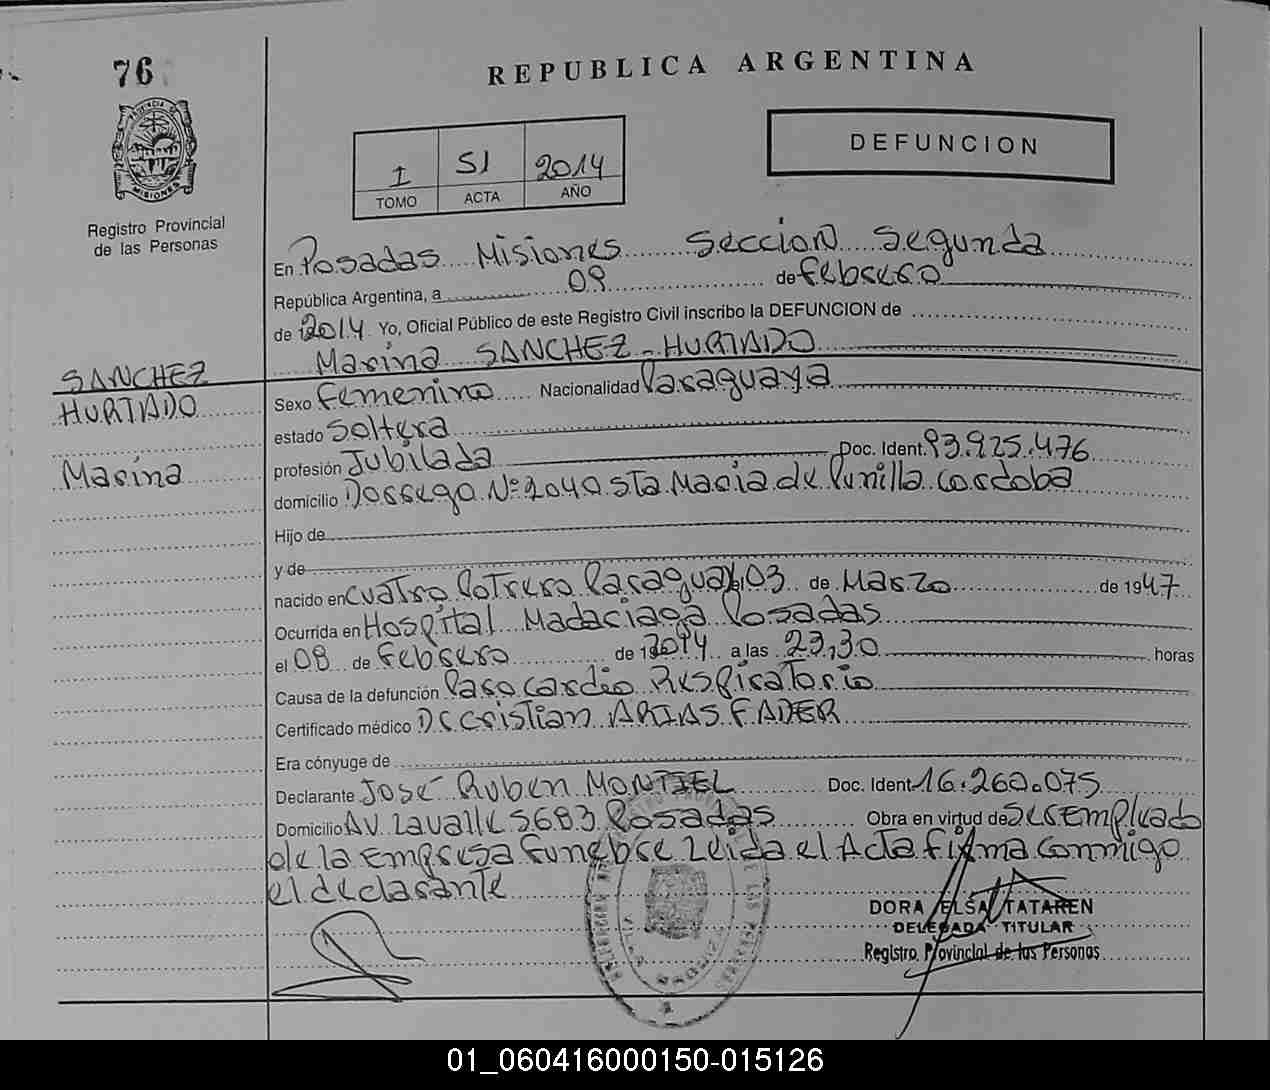 76
REPUBLICA ARGENTINA
DEFUNCION
I 51 2014
TOMO ACTA AÑO
PROVINCIA DE MISIONES
Registro Provincial
de las Personas
En Posadas Misiones Seccion Segunda
República Argentina, a 09 de Febrero
de 2014 Yo, Oficial Público de este Registro Civil inscribo la DEFUNCION de
Marina SANCHEZ - HURTADO
SANCHEZ
HURTADO
Marina
Sexo Femenino Nacionalidad Paraguaya
estado Soltera
profesión Jubilada Doc. Ident. 93.925.476
domicilio Dorrego Nº 2040 Sta Maria de Punilla Cordoba
Hijo de
y de
nacido en Cuatro Potrero Paraguay el 03 de Marzo de 1947
Ocurrida en Hospital Madariaga Posadas
el 08 de Febrero de 2014 a las 23,30 horas
Causa de la defunción Paro Cardio Respiratorio
Certificado médico Dr Cristian ARIAS FADER
Era cónyuge de
Declarante José Ruben MONTIEL Doc. Ident 16.260.075
Domicilio AV. Lavalle 5683 Posadas Obra en virtud de Ser Empleado
de la Empresa Funebre Leida el Acta Firma Conmigo
el declarante
DORA ELSA TATAREN
DELEGADA TITULAR
Registro Provincial de las Personas
01_060416000150-015126